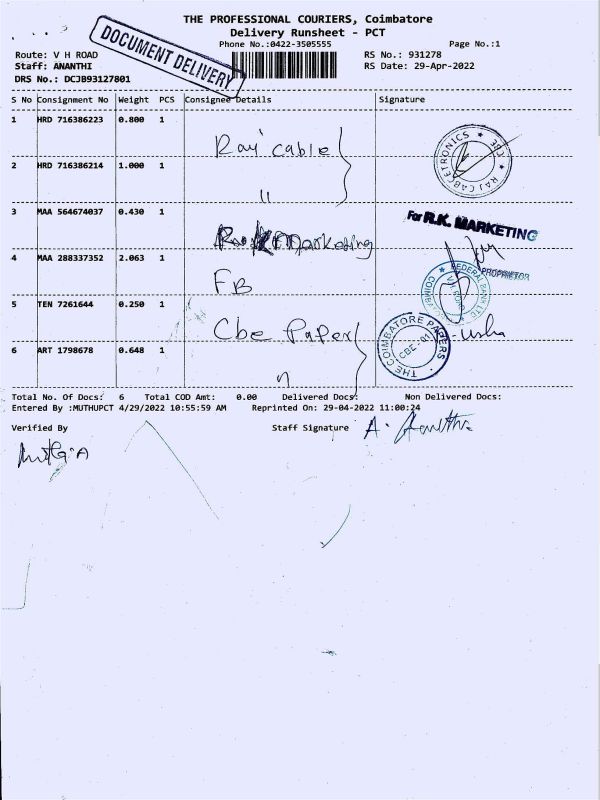 THE PROFESSIONAL COURIERS, Coimbatore
Delivery Runsheet - PCT
Phone No.:0422-3505555 Page No.:1
DOCUMENT DELIVERY
Route: V H ROAD RS No.: 931278
Staff: ANANTHI RS Date: 29-Apr-2022
DRS No.: DCJB93127801
S No Consignment No Weight PCS Consignee Details Signature
1 HRD 716386223 0.800 1
Raj cable
RAJ CABCETRONICS * CBE *
2 HRD 716386214 1.000 1
"
3 MAA 564674037 0.430 1
Marketing
For R.K. MARKETING
PROPRIETOR
4 MAA 288337352 2.063 1
FB
FEDERAL BANK LTD
V.H. ROAD
5 TEN 7261644 0.250 1
Cbe Paper
THE COIMBATORE PAPERS
CBE-01
usha
6 ART 1798678 0.648 1
"
Total No. Of Docs: 6 Total COD Amt: 0.00 Delivered Docs: Non Delivered Docs:
Entered By :MUTHUPCT 4/29/2022 10:55:59 AM Reprinted On: 29-04-2022 11:00:24
Verified By Staff Signature A. Ananthi